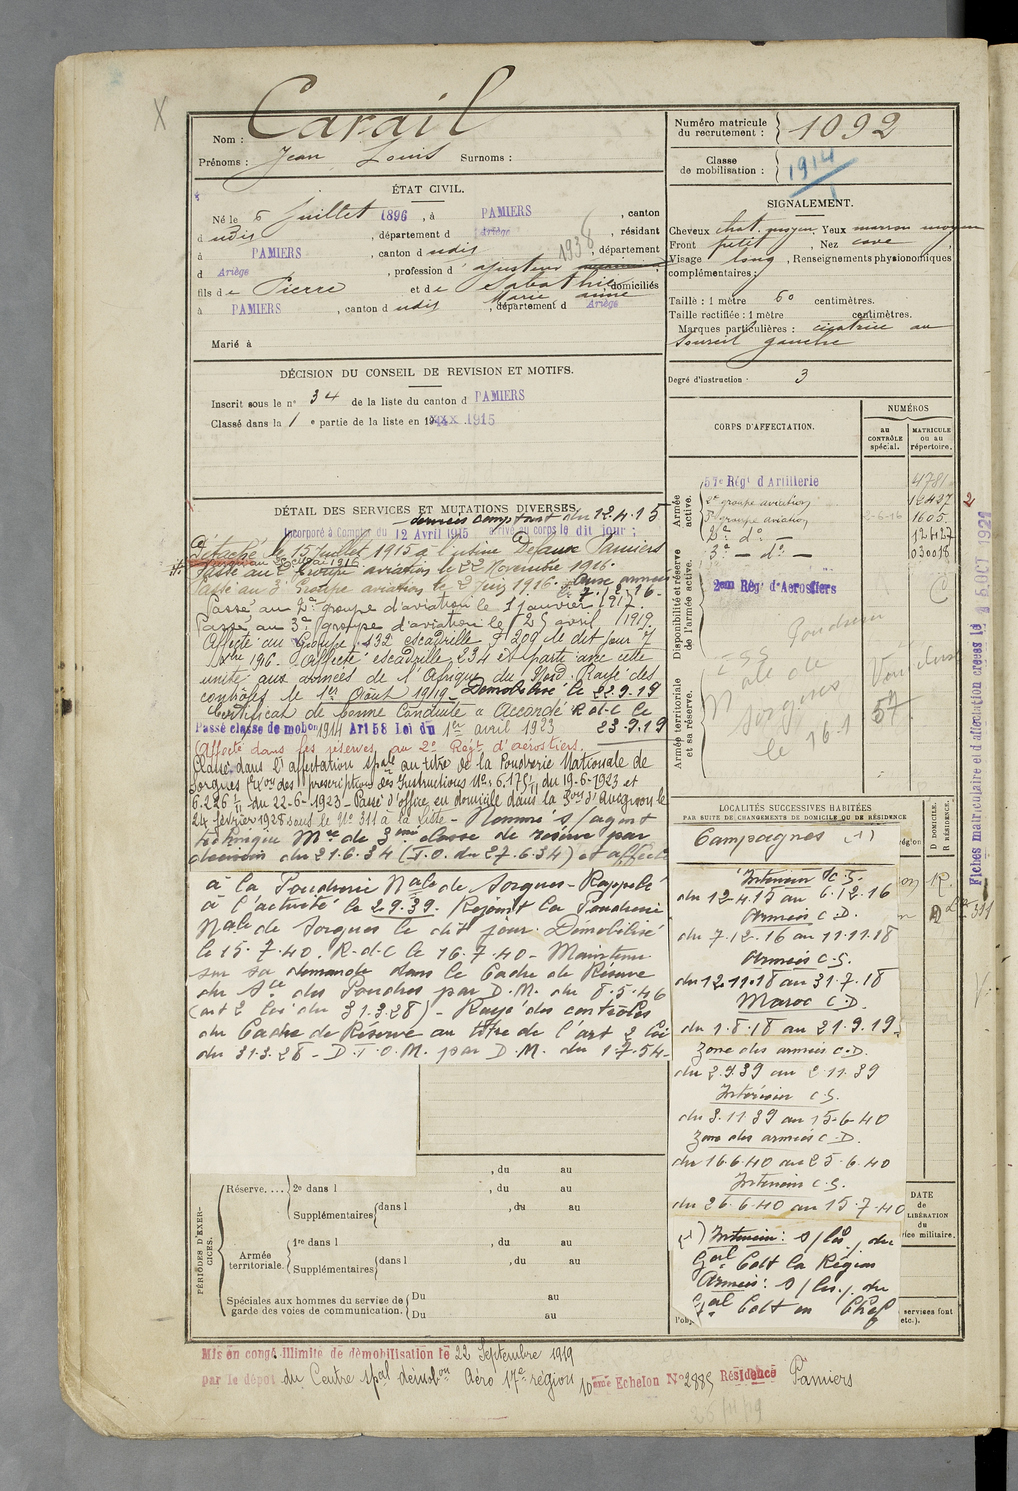 X
Nom : Carail
Prénoms : Jean Louis Surnoms :
Numéro matricule du recrutement : 1092
Classe de mobilisation : 1914
ÉTAT CIVIL.
Né le 6 Juillet 1896, à PAMIERS, canton
d udis, département d Ariège, résidant
à PAMIERS, canton d udis, département
d Ariège, profession d ajusteur
1938
fils de Pierre et de Sabathié Marie Anne, domiciliés
à PAMIERS, canton d udis, département d Ariège
Marié à
SIGNALEMENT.
Cheveux chat. moyen, Yeux marron moyen
Front petit, Nez cave
Visage long, Renseignements physionomiques
complémentaires :
Taille : 1 mètre 60 centimètres.
Taille rectifiée : 1 mètre centimètres.
Marques particulières : cicatrice au
sourcil gauche
Degré d'instruction : 3
DÉCISION DU CONSEIL DE REVISION ET MOTIFS.
Inscrit sous le n° 34 de la liste du canton d PAMIERS
Classé dans la 1e partie de la liste en 1915
CORPS D'AFFECTATION.
NUMÉROS
au CONTRÔLE spécial.
MATRICULE ou au répertoire.
Armée active.
57e Régt d'Artillerie 4781
2e groupe aviation 16497
3e groupe aviation 2-6-16 1605
2e do 12627
3e do 03008
Disponibilité et réserve de l'armée active.
2eme Rég. d'Aerostiers
Armée territoriale et sa réserve.
Poudrerie
Nale de
Sorgues
le 16.1
Vaucluse
57
DÉTAIL DES SERVICES ET MUTATIONS DIVERSES.
services comptant du 12.4.15
Incorporé à Compter du 12 Avril 1915 arrivé au corps le dit jour ;
Détaché le 15 Juillet 1915 à l'usine Defaux Pamiers
Passé au 2e Groupe aviation le 22 Novembre 1916.
Passé au 3e Groupe aviation le 2 Juin 1916. Aux armées le 7.12.16-
Passé au 2e groupe d'aviation le 1 janvier 1917.
Passé au 3e groupe d'aviation le 25 avril 1919.
Affecté au Groupe 132 escadrille F 209 le dit jour
Affecté escadrille 234 et parti avec cette
unité aux armées de l'Afrique du Nord. Rayé des
contrôles le 1er Août 1919 - Démobilisé le 22.9.19
Certificat de bonne Conduite "Accordé" R.d.C le
Passé classe de mobon 1914 Art 58 Loi du 1er avril 1923 23-9-19
Affecté dans les réserves au 2e Régt d'aérostiers.
Classé dans l'affectation spale au titre de la Poudrerie Nationale de
Sorgues (Exon des prescriptions des Instructions Nos 6.175/11 du 19-6-1923 et
6.226/11 du 22-6-1923 - Passé d'office en domicile dans la Son d'Avignon le
24 février 1928 sous le N° 311 à la liste - Nommé s/agent
technique Mre de 3eme classe de réserve par
décision du 21.6.34 (J.O. du 27.6.34) et affecté
à la Poudrerie Nale de Sorgues - Rappelé
à l'activité le 2.9.39. Rejoint la Poudrerie
Nale de Sorgues le dit jour. Démobilisé
le 15.7.40. R-d-C le 16.7.40 - Maintenu
sur sa demande dans le Cadre de Réserve
du Sce des Poudres par D.M. du 8.5.46
(art 2 loi du 31.3.28) - Rayé des contrôles
du Cadre de Réserve au titre de l'art 2 loi
du 31.3.28 - D.T.O.M. par D.M. du 1.7.54-
LOCALITÉS SUCCESSIVES HABITÉES
PAR SUITE DE CHANGEMENTS DE DOMICILE OU DE RÉSIDENCE
D DOMICILE.
R RÉSIDENCE.
Campagnes (1)
Intérieur C.S.
du 12.4.15 au 6.12.16
Armées C.D.
du 7.12.16 au 11.11.18
Armées C.S.
du 12.11.18 au 31.7.18
Maroc C.D.
du 1.8.18 au 21.9.19
Zone des armées C.D.
du 2.9.39 au 2.11.39
Intérieur C.S.
du 3.11.39 au 15.6.40
Zone des armées C.D.
du 16.6.40 au 25.6.40
Intérieur C.S.
du 26.6.40 au 15.7.40
(1) Intérieur : s/ les / du
Gal Cdt la Région
Armées : s / les / du
Gal Cdt en Chef
R.
D 311
DATE de LIBÉRATION du service militaire.
services font
etc.).
Fiches matriculaire et d'affectation créées le 15 OCT 1921
PÉRIODES D'EXERCICES.
, du au
Réserve.... 2e dans l , du au
Supplémentaires dans l , du au
Armée territoriale. 1re dans l , du au
Supplémentaires dans l , du au
Spéciales aux hommes du service de garde des voies de communication. Du au
Du au
Mis en congé illimité de démobilisation le 22 Septembre 1919
par le dépôt du Centre spal démobon Aéro 17e région 10eme Echelon N° 2885 Résidence Pamiers